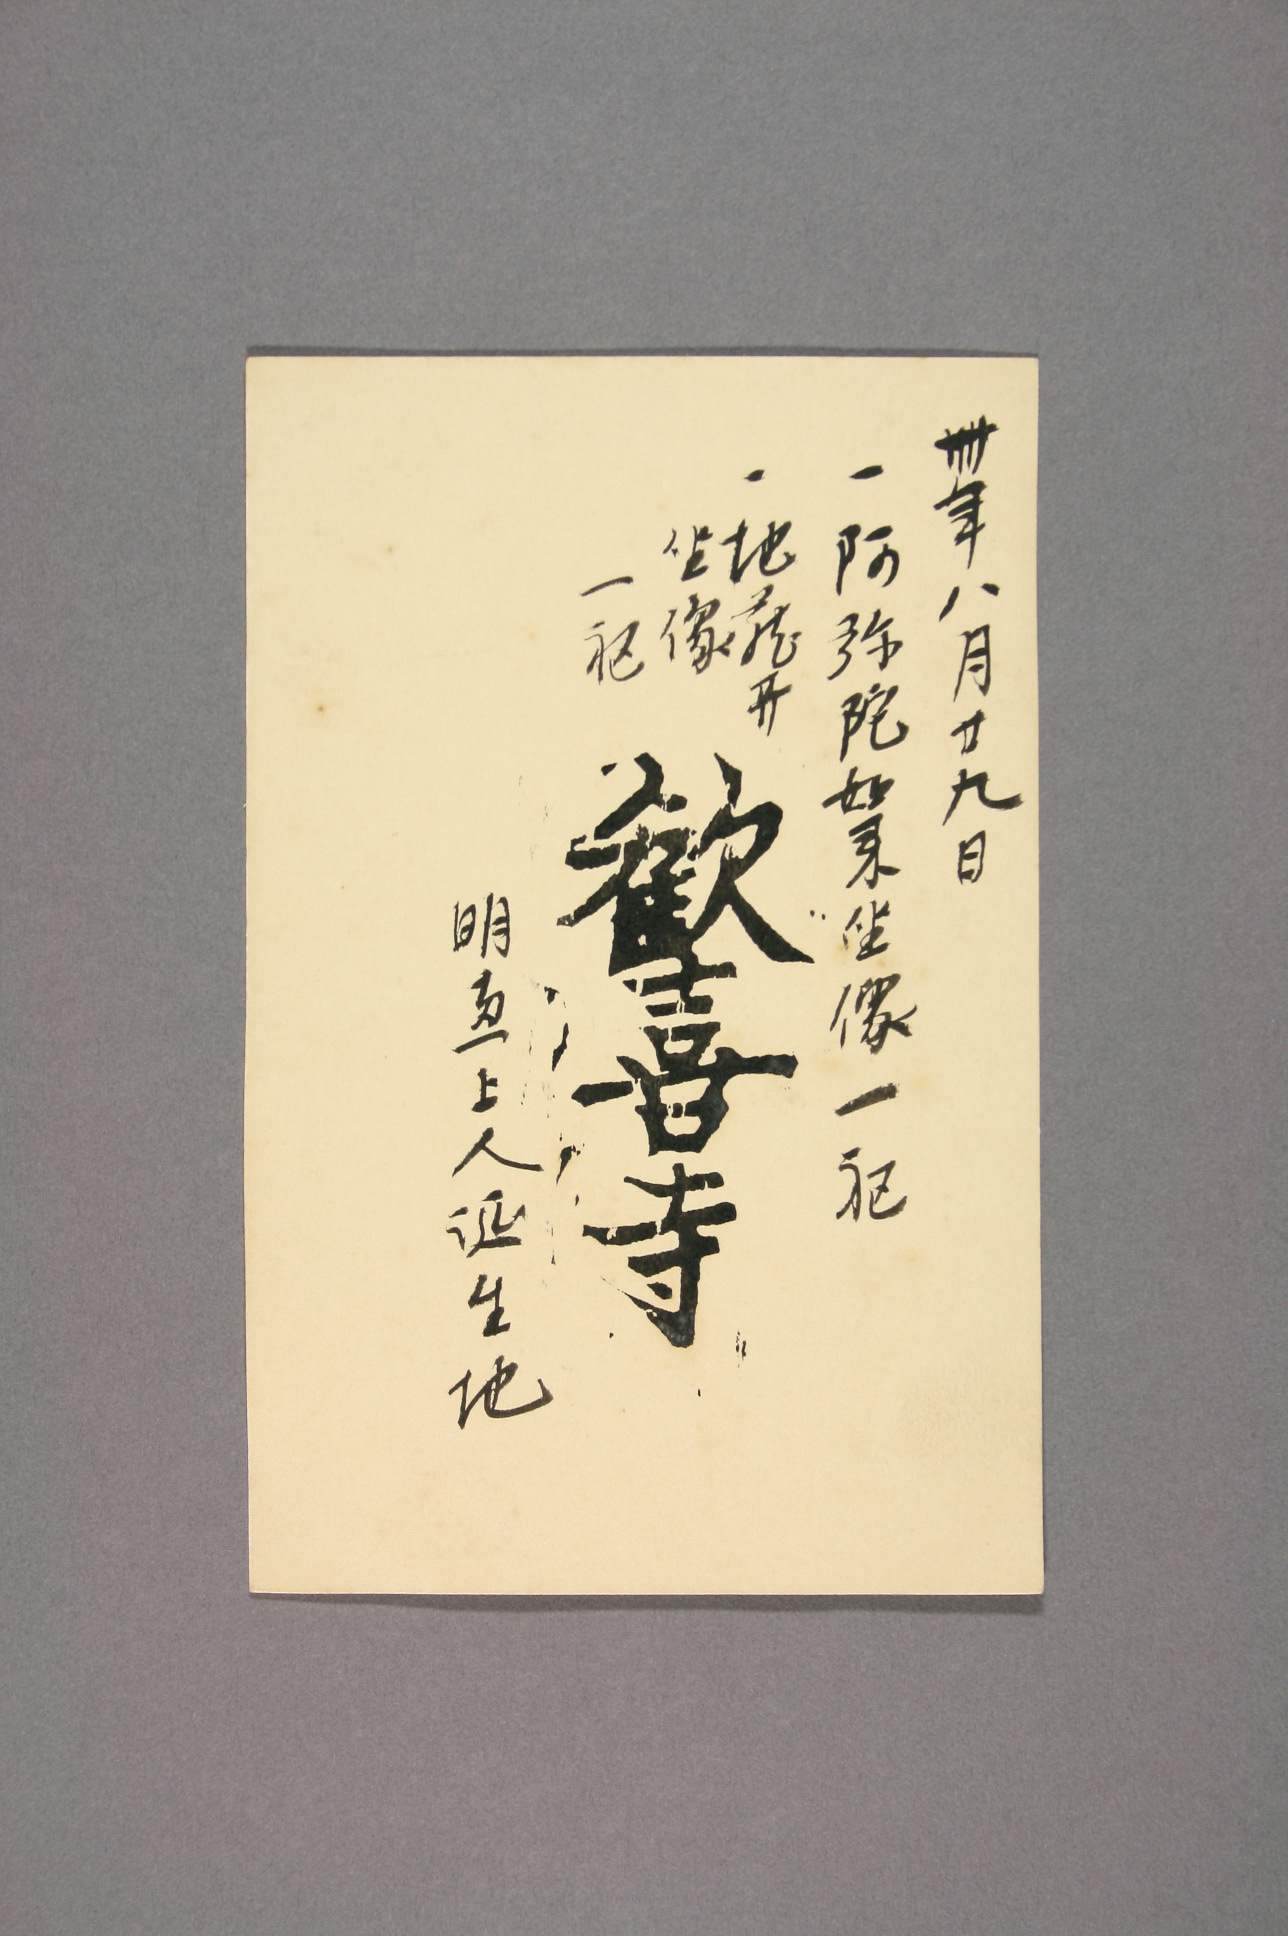 卌年八月廿九日
一阿弥陀如来坐像一躯
一地蔵𦬇
坐像
一躯
歡喜寺
明恵上人誕生地